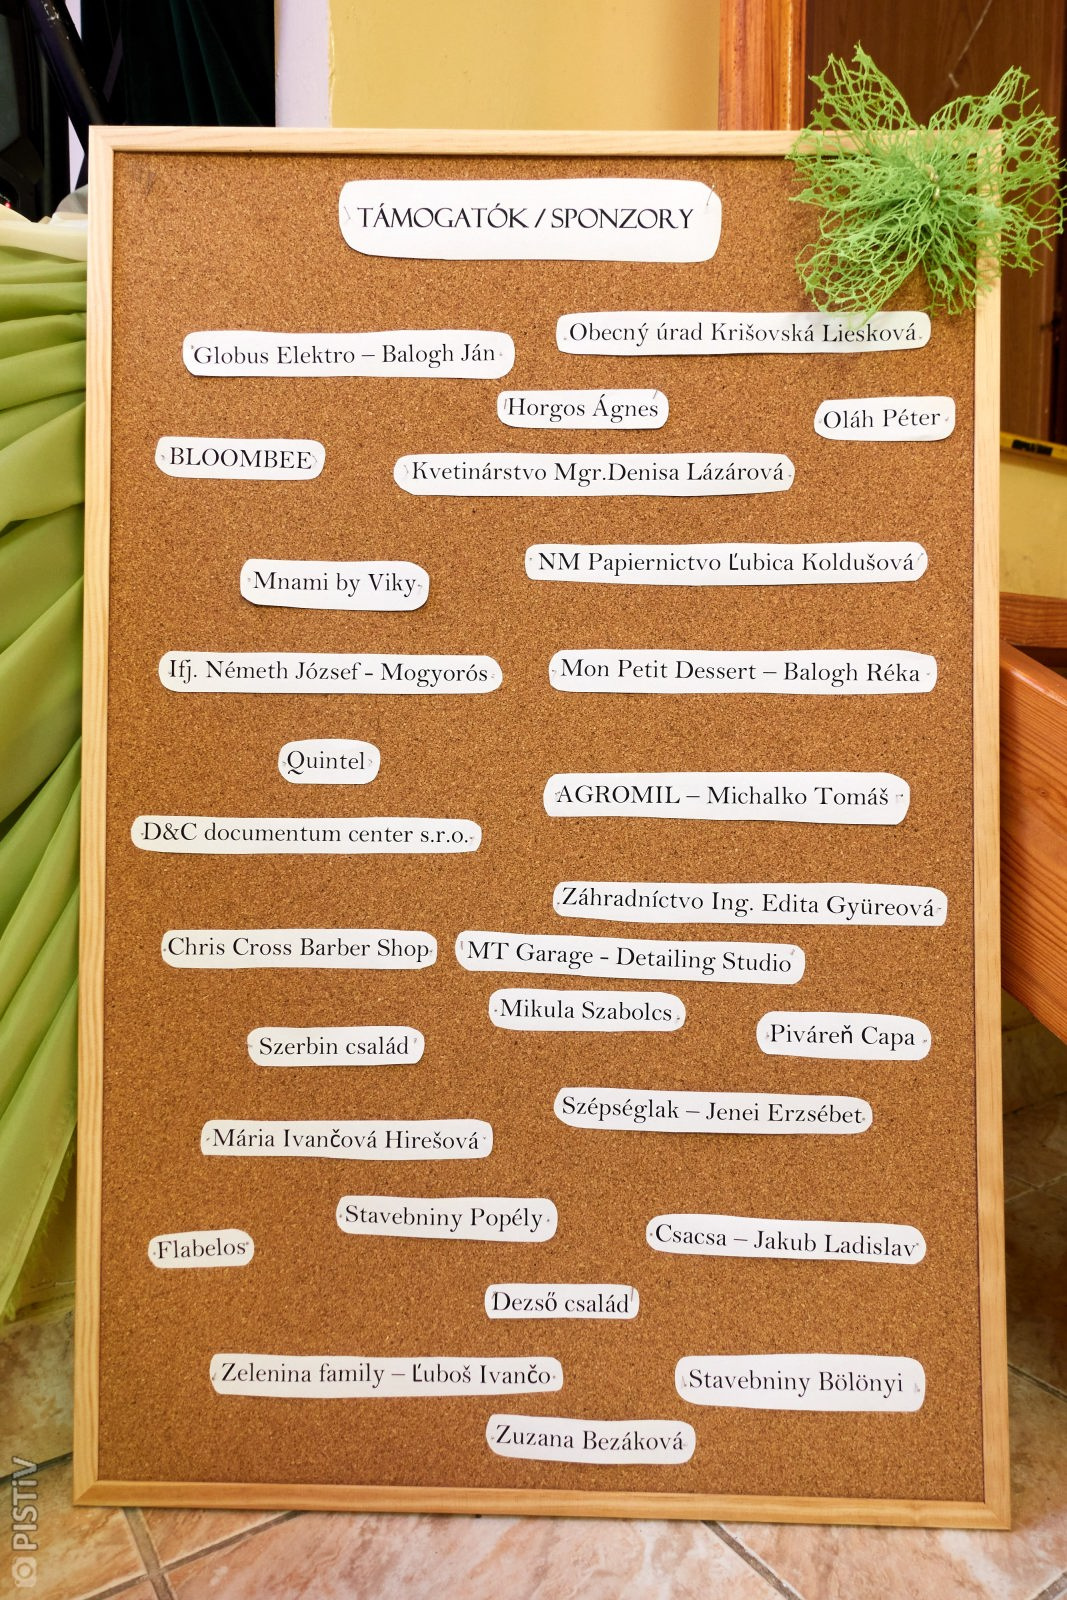 TÁMOGATÓK / SPONZORY
Globus Elektro – Balogh Ján
Obecný úrad Krišovská Liesková
Horgos Ágnes
Oláh Péter
BLOOMBEE
Kvetinárstvo Mgr.Denisa Lázárová
Mnami by Viky
NM Papiernictvo Ľubica Koldušová
Ifj. Németh József - Mogyorós
Mon Petit Dessert – Balogh Réka
Quintel
AGROMIL – Michalko Tomáš
D&C documentum center s.r.o.
Záhradníctvo Ing. Edita Gyüreová
Chris Cross Barber Shop
MT Garage - Detailing Studio
Mikula Szabolcs
Piváreň Capa
Szerbin család
Szépséglak – Jenei Erzsébet
Mária Ivančová Hirešová
Stavebniny Popély
Csacsa – Jakub Ladislav
Flabelos
Dezső család
Zelenina family – Ľuboš Ivančo
Stavebniny Bölönyi
Zuzana Bezáková
PISTiV